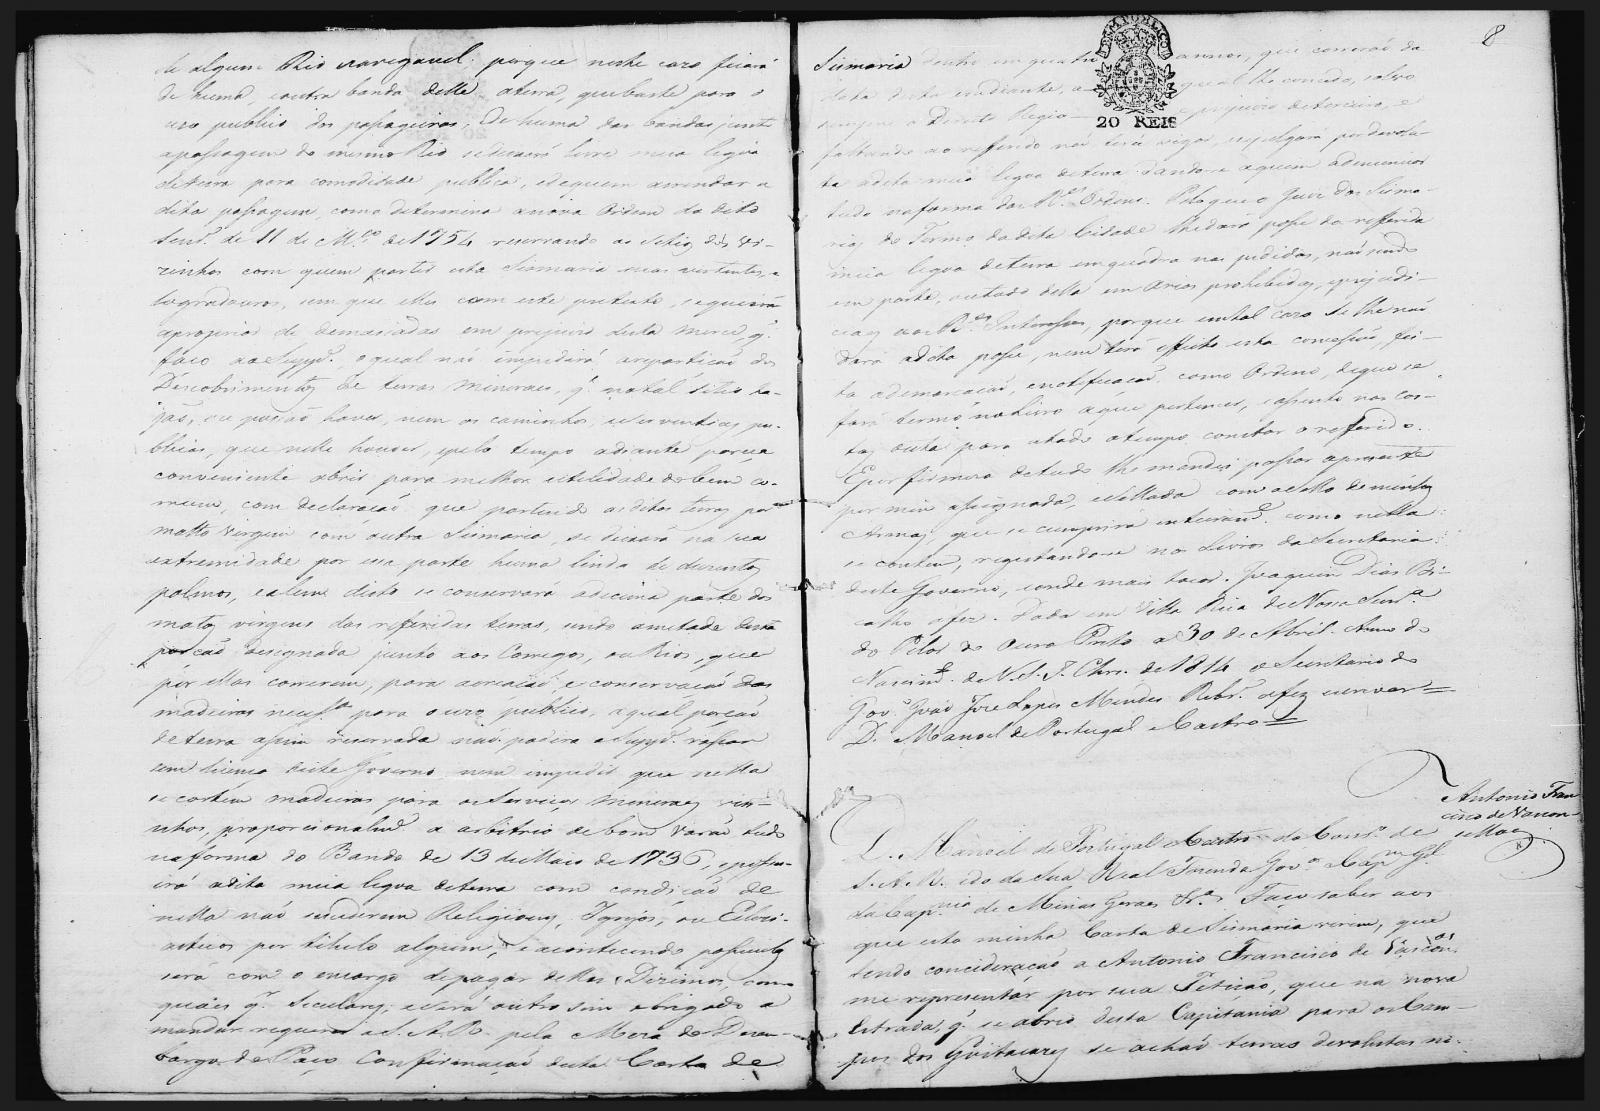 de algum Rio navegavel, porque neste cazo ficará
de huma, e outra banda delle aterra, que baste para o
uzo publico dos passageiros. De huma das bandas junto
apassagem do mesmo Rio se deixará livre meia legoa
de terra para comodidade publica, e de quem arrendar a
dita passagem, como determina a nova Ordem do dito
Senr. de 11 de M.ço de 1754 reservando os Sitios dos vi-
zinhos com quem partir esta Sismaria suas vertentes, e
logradouros, sem que elles com este pretexto, se queirão
apropriar de demaziadas em prejuizo desta merce, q.
faço ao Supp.e, o qual não impedirá a repartição dos
Descobrimentos de terras mineraes, q. no tal sitio ha-
jão, ou possão haver, nem os caminhos, e serventias pu-
blicas, que nelle houver, e pelo tempo adiante pareça
conveniente abrir para melhor utilidade do bem co-
mum, com declaração que partindo as ditas terras por
matto virgem com outra Sismaria, se deixará na sua
extremidade por essa parte huma linda de duzentos
palmos, e alem disto se conservará a decima parte dos
matos virgens das referidas terras, sendo ametade desta
porção designada junto aos Corregos, ou Rios, que
por ellas correrem, para creação, e conservação das
madeiras necess.as para o uzo publico, a qual porção
de terra assim reservada não poderá o Supp.e rossar
sem licença deste Governo nem impedir que nella
se cortem madeiras para os Serviços mineraes vizi-
nhos, proporcionalm.e a arbitrio de bom Varão tudo
na forma do Bando de 13 de Maio de 1736, e possu-
irá a dita meia legoa de terra com condição de
nella não sucederem Religioens, Igrejas, ou Eclezi-
asticos por titulo algum, e acontecendo possuilas
será com o encargo de pagar dellas Dizimos, como
quaes q.r Seculares; e será outro sim obrigado a
mandar requerer a S. A. R. pela Meza do Dezem-
bargo do Paço Confirmação desta Carta de
8
20 REIS
Sismaria dentro em quatro annos, que correrão da
data desta em diante, a qual lhe concedo, salvo
sempre o Direito Regio e prejuizo de terceiro, e
faltando ao referido não terá vigor, e se julgará por devolu-
ta a dita meia legoa de terra dando-se a quem a denunciar
tudo na forma das R.es Ordens. Pelo que o Juiz das Sisma-
rias do Termo da dita Cidade lhe dará posse da refferida
meia legoa de terra em quadra nas pedidas, não sendo
em parte, ou todo della em Areas prohibidas, e prejudi-
ciaes aos R.es Interesses, porque em tal cazo se lhe não
dará a dita posse, nem terá effeito esta concessão, fei-
ta a demarcação, e notificação como Ordeno, de que se
fará termo no Livro a que pertencer, e assento nas cos-
tas desta para a todo o tempo constar o refferido.
E por firmeza de tudo lhe mandei passar a presente
por mim assignada, e sellada com o sello de minhas
Armas, que se cumprirá inteiram.e como nella
se contem, registando-se nos Livros da Secretaria
deste Governo, e onde mais tocar. Joaquim Dias Bi-
calho a fez. Dada em Villa Rica de Nossa Senr.a
do Pilar do Ouro Preto a 30 de Abril. Anno do
Nascim.to de N. S. J. Chr. de 1814 o Secretario do
Gov.o João Joze Lopes Mendes Ribr.o a fez escrever =
D. Manoel de Portugal e Castro =
Antonio Fran-
cisco de Vascon-
sellos
D. Manoel de Portugal e Castro do Cons.o de
S. A. R. e do da Sua Real Fazenda Gov.or e Cap.m Gl
da Cap.nia de Minas Geraes &.a Faço saber aos
que esta minha Carta de Sismaria virem, que
tendo concideração a Antonio Francisco de Vascon.os
me reprezentar por sua Petição, que na nova
Estrada, q. se abrio desta Capitania para os Cam-
pos dos Goitacazes se achão terras devolutas no